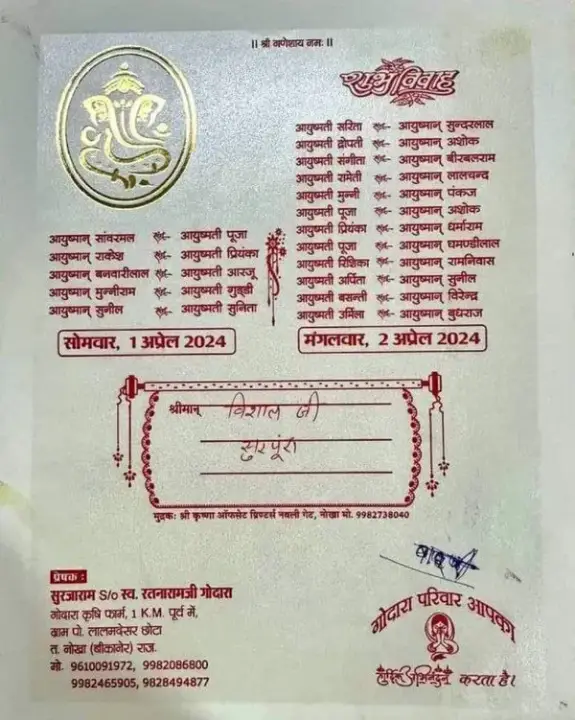 || श्री गणेशाय नमः ||
शुभ विवाह
आयुष्मती सरिता आयुष्मान् सुन्दरलाल
आयुष्मती द्रोपती आयुष्मान् अशोक
आयुष्मती संगीता आयुष्मान् बीरबलराम
आयुष्मती रामेती आयुष्मान् लालचन्द
आयुष्मती मुन्नी आयुष्मान् पंकज
आयुष्मती पूजा आयुष्मान् अशोक
आयुष्मती प्रियंका आयुष्मान् धर्माराम
आयुष्मती पूजा आयुष्मान् घमण्डीलाल
आयुष्मती रिशिका आयुष्मान् रामनिवास
आयुष्मती अर्पिता आयुष्मान् सुनील
आयुष्मती बसन्ती आयुष्मान् विरेन्द्र
आयुष्मती उर्मिला आयुष्मान् बुधराज
मंगलवार, 2 अप्रेल 2024
आयुष्मान् सांवरमल आयुष्मती पूजा
आयुष्मान् राकेश आयुष्मती प्रियंका
आयुष्मान् बनवारीलाल आयुष्मती आरजू
आयुष्मान् मुन्नीराम आयुष्मती गुड्डी
आयुष्मान् सुनील आयुष्मती सुनिता
सोमवार, 1 अप्रेल 2024
श्रीमान् विशाल जी
सुरपुरा
मुद्रकः श्री कृष्णा ऑफसेट प्रिण्टर्स नवली गेट, नोखा मो. 9982738040
प्रेषक :
सुरजाराम S/o स्व. रतनारामजी गोदारा
गोदारा कृषि फार्म, 1 K.M. पूर्व में,
ग्राम पो. लालमदेसर छोटा
त. नोखा (बीकानेर) राज.
मो. 9610091972, 9982086800
9982465905, 9828494877
गोदारा परिवार आपका
हार्दिक अभिनन्दन करता है।